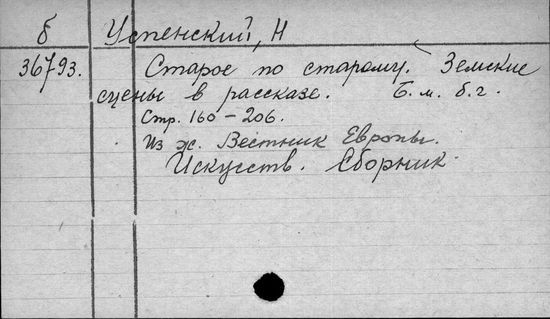 б Успенский, Н
36793. Старое по старому. Земские
сцены в рассказе. Б. м. б. г.
Стр. 160 – 206.
Из ж. Вестник Европы.
Искусств. Сборник.